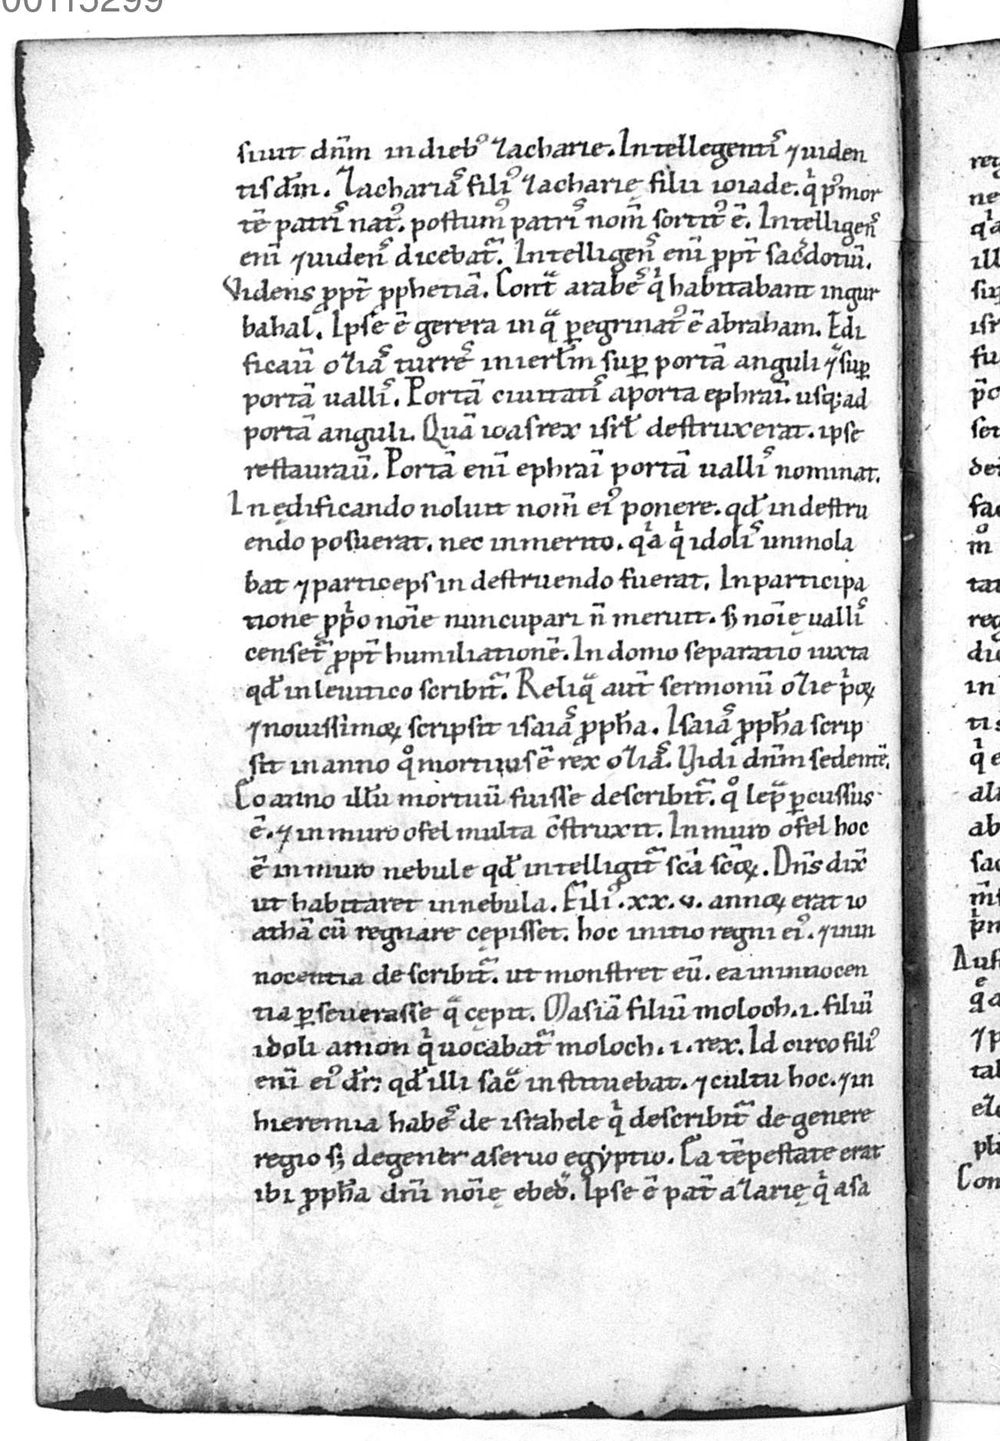 00115299
siuit dn̄m in dieb᾿ zacharie. Intellegentis ⁊ uiden
tis dm̄. Zacharias fili᾿ zacharię filii ioiade. q̇ p᾿ mor
tē patris nat᾿. postum᾿ patris nom̄ sortit᾿ ē. Intelligens
eni ⁊ uidens dicebat᷑. Intelligens eni ꝓpt̄ sac̓dotiū.
Videns ꝓpt̄ ꝓphetiā. Cont͛ arabes q̇ habitabant in gur
bahal. Ipse ē gerera in q͛ ꝑegrinat᾿ ē abraham. Edi
ficauı̄ ozias turres in ierlm̄ suꝑ portā anguli ⁊ suꝑ
portā uallis. Portā ciuitatis a porta ephraı̄. usq; ad
portā anguli. Quā ioas rex isrł destruxerat. ipse
restauraū. Portā eni ephraı̄ portā uallis nominat.
In ędificando noluit nom̄ ei᾿ ponere. qđ in destru
endo posuerat. nec inmerito. q̇a q̇ idolis immola
bat ⁊ particeps in destruendo fuerat. In participa
tione ꝓpō noı̄e nuncupari n̄ meruit. s; noı̄ę uallis
censet᷑ ꝓpt̄ humilationē. In domo separatio iuxta
qđ in leuitico scribit᷑. Reliq͛ aut̄ sermonū ozie pͥoꝝ
⁊ nouissimoꝝ scripsit isaias ꝓpħa. Isaias ꝓpħa scrip
sit in anno qͦ mortuus ē rex ozias. Vidi dn̄m sedentē.
Eo anno illū mortuū fuisse describit᷑. qͦ lep͛ ꝑcussus
ē. ⁊ in muro ofel multa c̄struxit. In muro ofel hoc
ē in muro nebule qđ intelligit᷑ sc̄a sc̄oꝝ. Dn̄s dix̄
ut habitaret in nebula. Fili᾿ .xx.v. annoꝝ erat io
athā cū regnare cępisset. hoc initio regni ei᾿. ⁊ in in
nocentia describit᷑. ut monstret eū. ea in innocen
tia ꝑseuerasse q͛ cępit. Masiā filiū moloch .i. filiū
idoli amon q̇ uocabat᷑ moloch .i. rex. Id circo fili᾿
eni ei᾿ dr̄: qđ illi sac̄ instituebat. ⁊ cultu hoc. ⁊ in
hieremia habes de israhele q̇ describit᷑ de genere
regio s; degener a seruo egyptio. Ea tēpestate erat
ibi ꝓpħa dn̄i noı̄ę ebed̄. Ipse ē pat̄ azarię q̇ asa